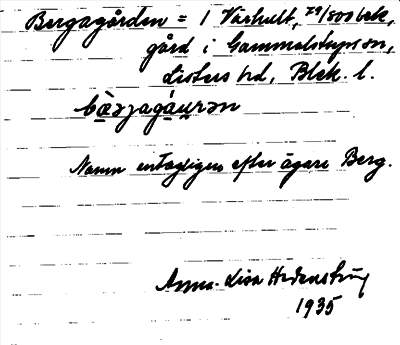 Bergagården = 1 Vårhult, 29/800 bek,
gård i Gammelstorps sn,
Listers hd, Blek. l.
Namn antagligen efter ägare Berg.
Anna-Lisa Hedenstrug
1935